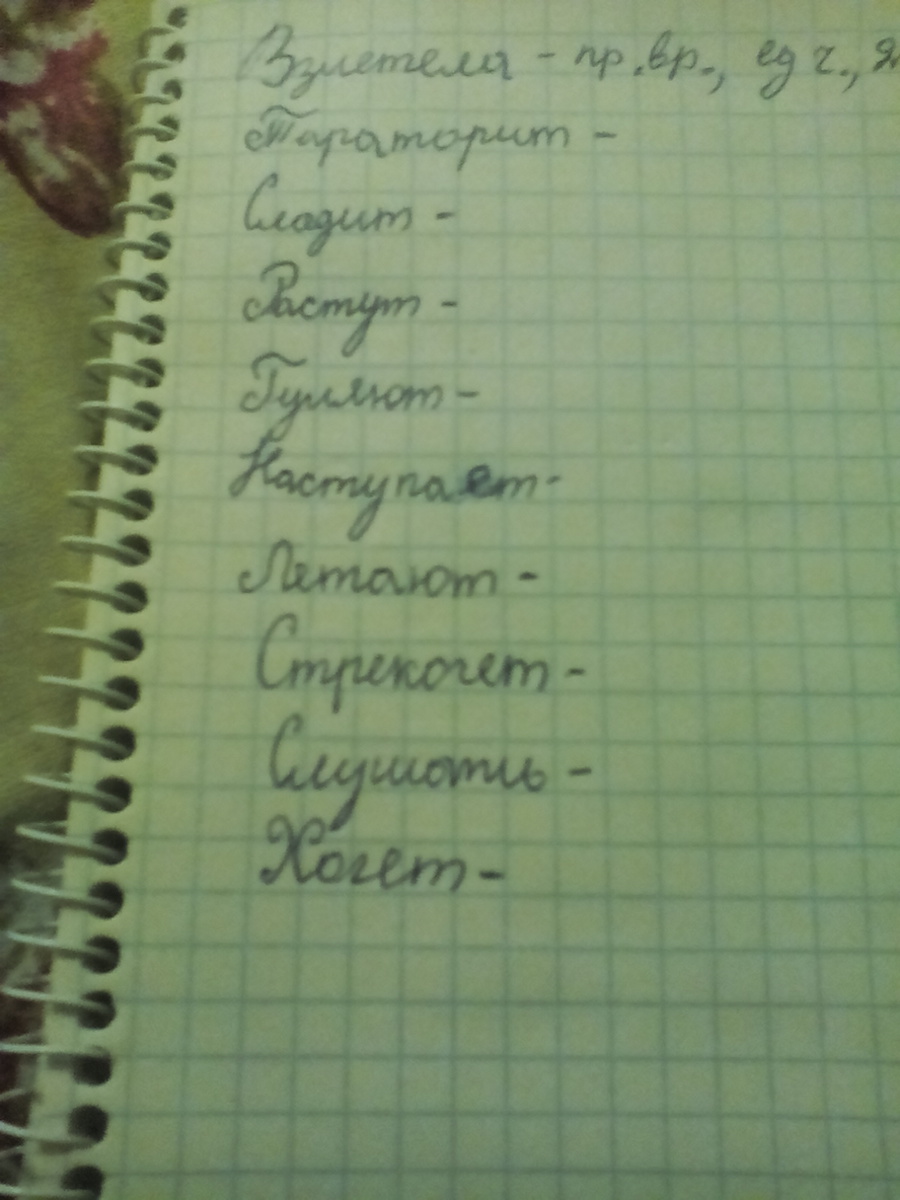 Взлетела - пр.вр., ед ч.,
Тараторит -
Сладит -
Растут -
Гуляют -
Наступает-
Летают -
Стрекочет -
Слушать -
Хочет -